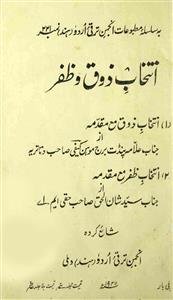 بہ سلسلۂ مطبوعات انجمن ترقی اُردو (ہند) نمبر
انتخابِ ذوق و ظفر
(۱) انتخابِ ذوق مع مقدمہ
از
جناب علامہ پنڈت برج موہن کیفی صاحب دتاتریہ
(۲) انتخابِ ظفر مع مقدمہ
از
جناب سید شان الحق صاحب حقی ایم اے
شائع کردہ
انجمن ترقی اُردو (ہند) دہلی